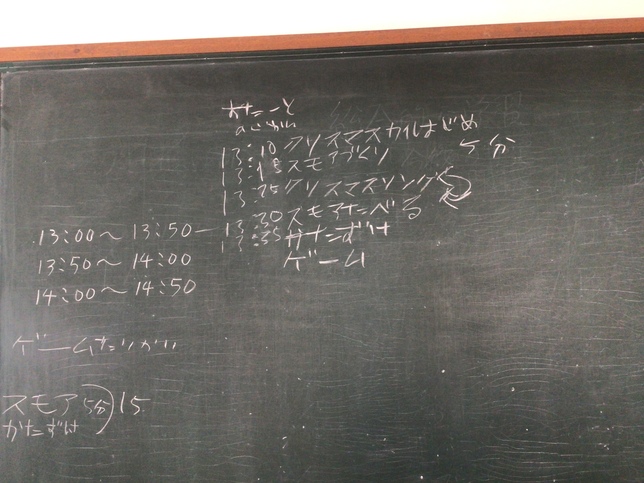 13:10 クリスマスカイはじめ
5分
13:15 スモアづくり
13:25 クリスマスソング
13:30 スモアたべる
13:35 かたずけ
ゲーム
13:00〜13:50
13:50〜14:00
14:00〜14:50
スモア 5分 15
かたずけ